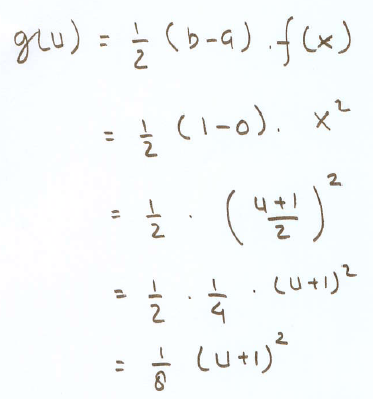 g(u) = 1/2 (b-a) . f(x)
= 1/2 (1-0) . x²
= 1/2 . ((u+1)/2)²
= 1/2 . 1/4 . (u+1)²
= 1/8 (u+1)²